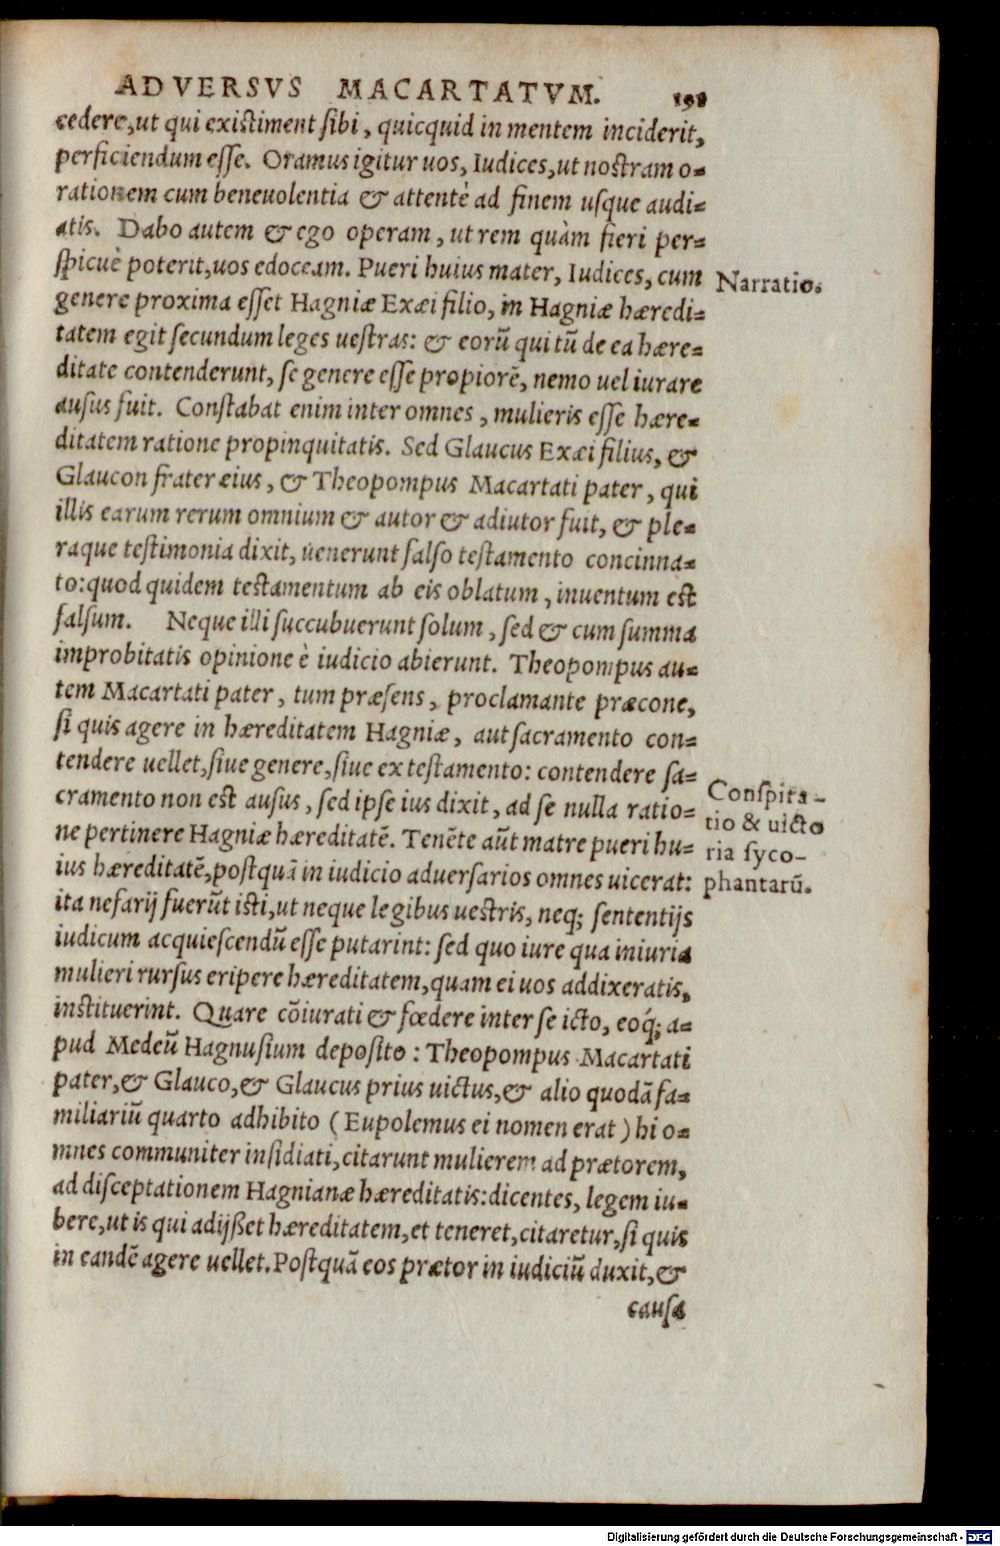 ADVERSVS MACARTATVM. 198
cedere,ut qui existiment sibi, quicquid in mentem inciderit,
perficiendum esse. Oramus igitur uos, Iudices,ut nostram o-
rationem cum beneuolentia & attentè ad finem usque audi-
atis. Dabo autem & ego operam, ut rem quàm fieri per-
spicuè poterit,uos edoceam. Pueri huius mater, Iudices, cum
Narratio.
genere proxima esset Hagniæ Exæi filio, in Hagniæ hæredi-
tatem egit secundum leges uestras: & eorũ qui tũ de ea hære-
ditate contenderunt, se genere esse propiorẽ, nemo uel iurare
ausus fuit. Constabat enim inter omnes, mulieris esse hære-
ditatem ratione propinquitatis. Sed Glaucus Exæi filius, &
Glaucon frater eius, & Theopompus Macartati pater, qui
illis earum rerum omnium & autor & adiutor fuit, & ple-
raque testimonia dixit, uenerunt falso testamento concinna-
to:quod quidem testamentum ab eis oblatum, inuentum est
falsum. Neque illi succubuerunt solum, sed & cum summa
improbitatis opinione è iudicio abierunt. Theopompus au-
tem Macartati pater, tum præsens, proclamante præcone,
si quis agere in hæreditatem Hagniæ, aut sacramento con-
tendere uellet,siue genere,siue ex testamento: contendere sa-
cramento non est ausus, sed ipse ius dixit, ad se nulla ratio-
ne pertinere Hagniæ hæreditatẽ. Tenẽte aũt matre pueri hu-
ius hæreditatẽ,postquã in iudicio aduersarios omnes uicerat:
Conspira-
tio & uicto
ria syco-
phantarũ.
ita nefarij fuerũt isti,ut neque legibus uestris, neq; sententijs
iudicum acquiescendũ esse putarint: sed quo iure qua iniuria
mulieri rursus eripere hæreditatem,quam ei uos addixeratis,
instituerint. Quare cõiurati & fœdere inter se icto, eoq́; a-
pud Medeũ Hagnusium deposito: Theopompus Macartati
pater,& Glauco,& Glaucus prius uictus,& alio quodã fa-
miliariũ quarto adhibito (Eupolemus ei nomen erat) hi o-
mnes communiter insidiati,citarunt mulierem ad prætorem,
ad disceptationem Hagnianæ hæreditatis:dicentes, legem iu-
bere,ut is qui adijßet hæreditatem,et teneret,citaretur,si quis
in eandẽ agere uellet.Postquã eos prætor in iudiciũ duxit,&
causa
Digitalisierung gefördert durch die Deutsche Forschungsgemeinschaft - DFG